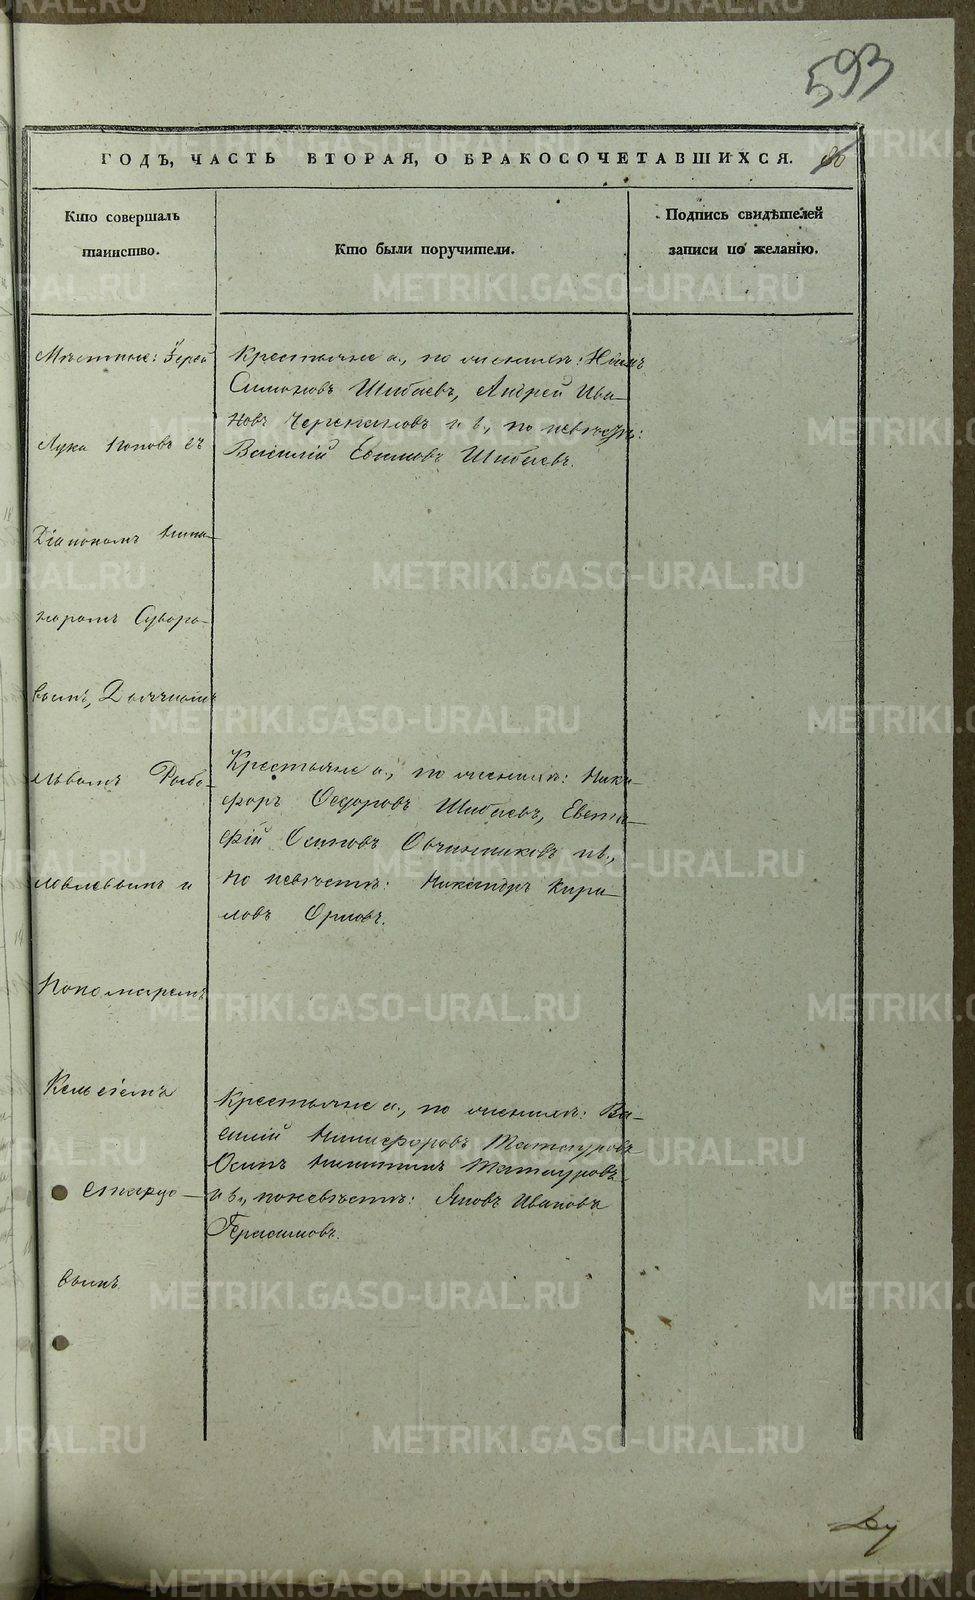 593
ГОДЪ, ЧАСТЬ ВТОРАЯ, О БРАКОСОЧЕТАВШИХСЯ.
Кто совершалъ
таинство.
Кто были поручители.
Подпись свидѣтелей
записи по желанію.
Мѣстные: Іерей
Лука Поповъ съ
Діакономъ Ника-
норомъ Суворо-
вымъ, Дьячкомъ
Львомъ
и
Пономаремъ
Кельсіемъ
Старцо-
вымъ.
Крестьяне а., по женихѣ:
Симоновъ Шибаевъ, Андрей Ива-
новъ Черепановъ и в., по невѣстѣ:
Василій Ефимовъ Шибаевъ.
Крестьяне а., по женихѣ: Ники-
форъ Ѳедоровъ Шибаевъ, Евста-
фій Осиповъ Овчинниковъ и в.,
по невѣстѣ: Никандръ Кири-
ловъ Орловъ.
Крестьяне а., по женихѣ: Ва-
силій Никифоровъ Татауровъ
Осипъ Никитинъ Татауровъ
и в., по невѣстѣ: Яковъ Ивановъ
Герасимовъ.
METRIKI.GASO-URAL.RU